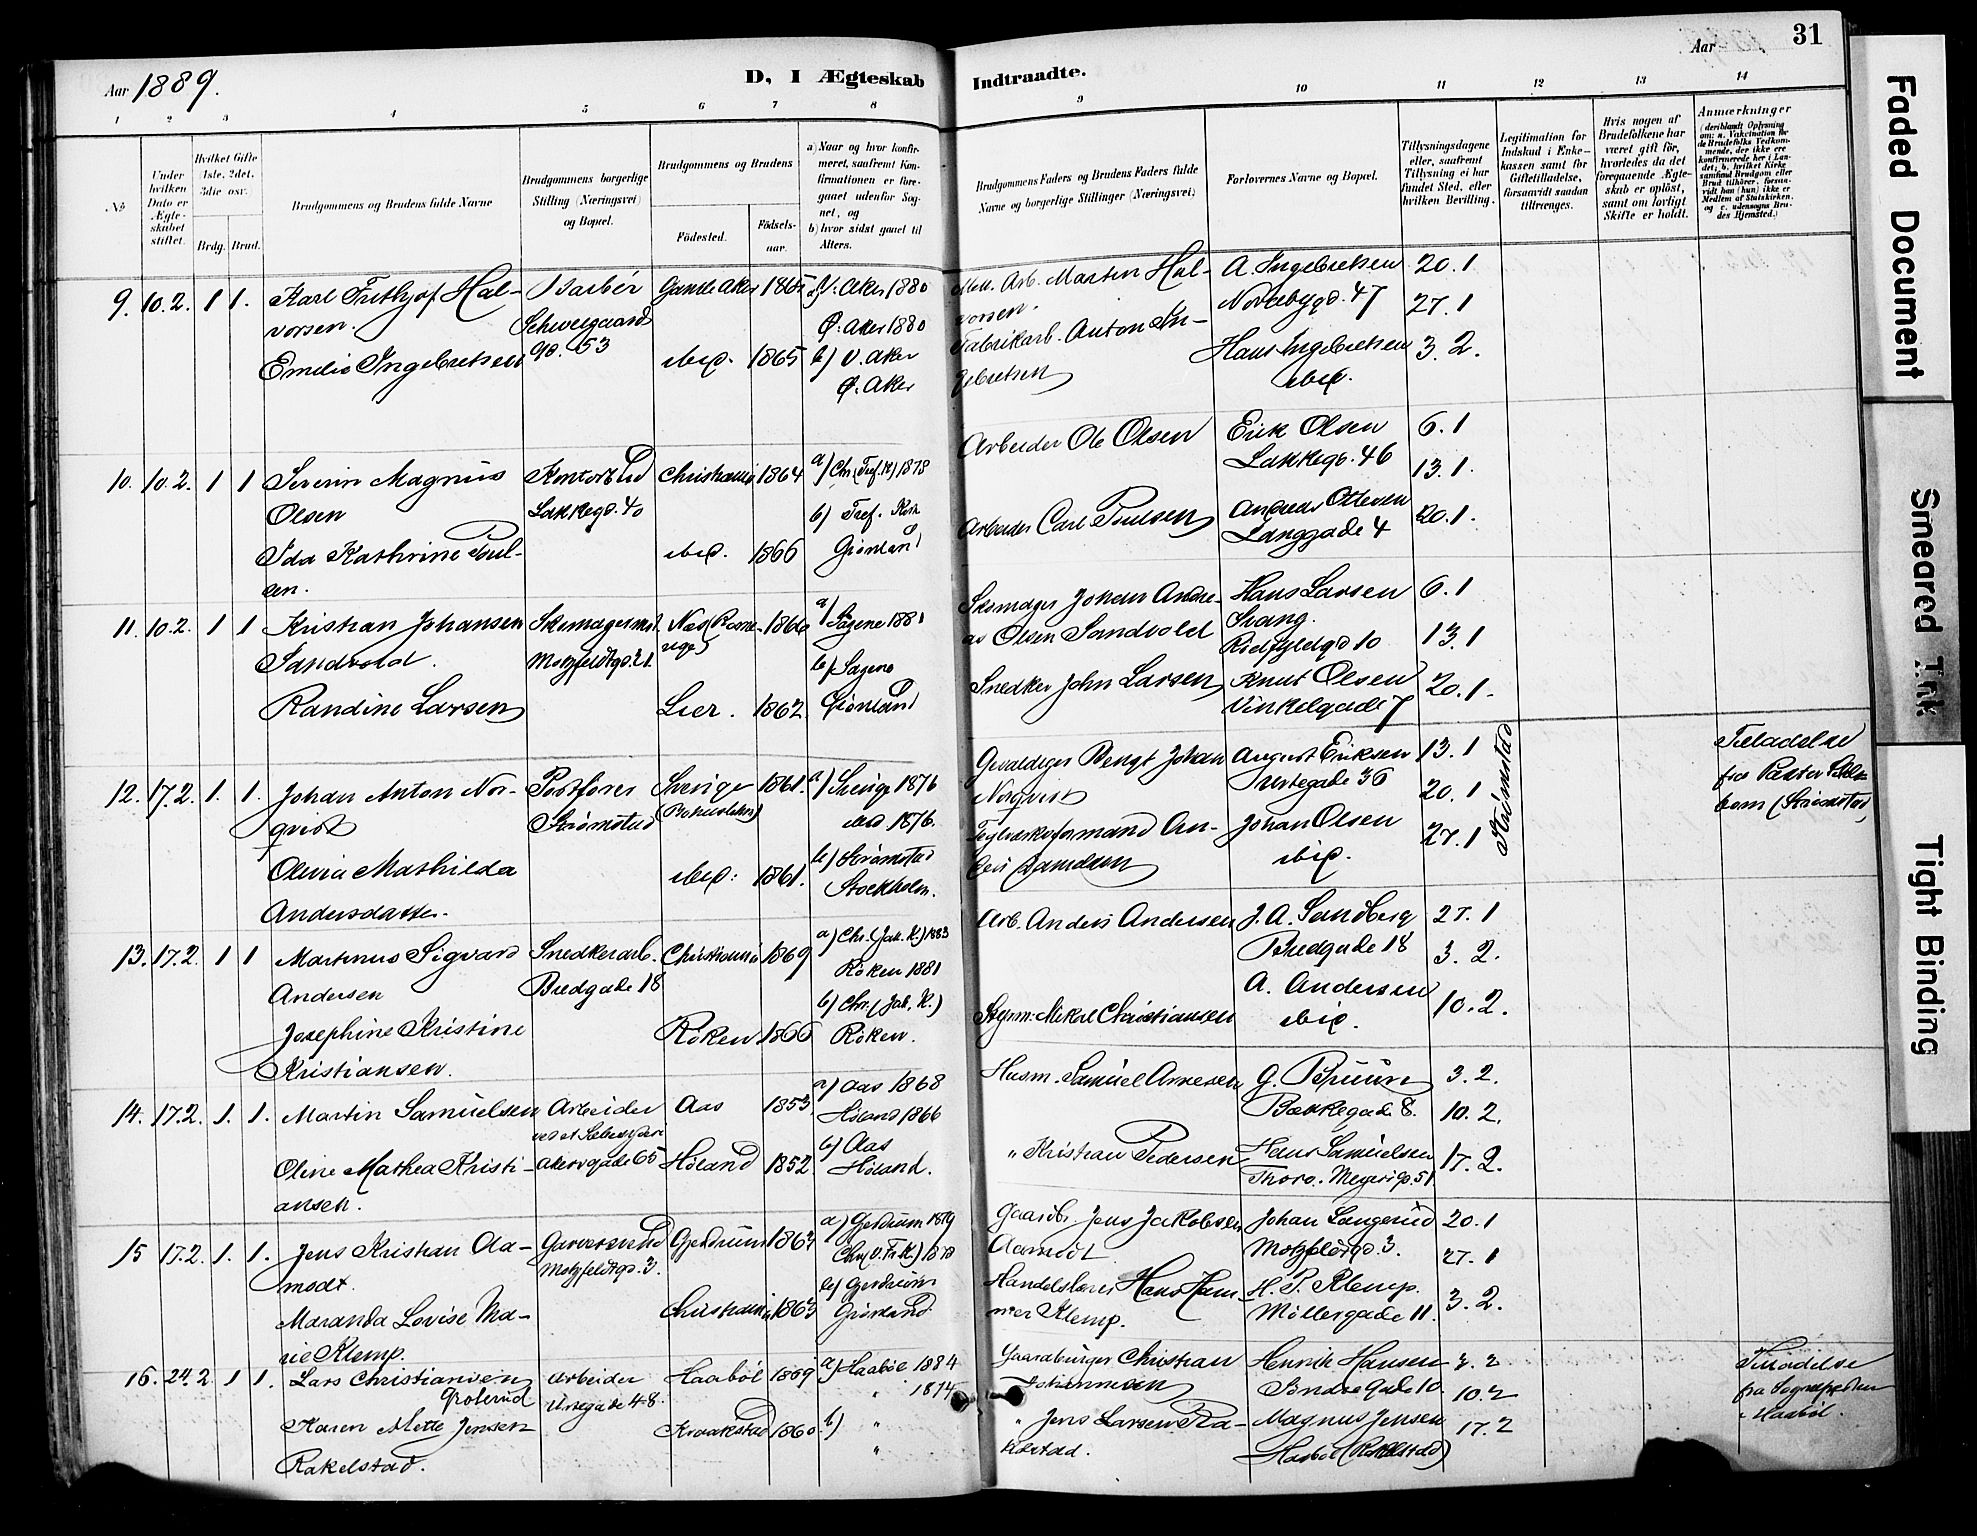 Aar 1889.
D, I Ægteskab
Indtraadte.
Aar
31
1 2 3 4 5 6 7 8
9 10 11 12 13 14
No
Under hvilken Dato er Ægteskabet stiftet.
Hvilket Gifte 1ste, 2det, 3die osv.
Brdg. Brud.
Brudgommens og Brudens fulde Navne
Brudgommens borgerlige Stilling (Næringsvei) og Bopæl.
Brudgommens og Brudens
Födested.
Födselsaar.
a) Naar og hvor konfirmeret, saafremt Konfirmationen er foregaaet udenfor Sognet, og
b) hvor sidst gaaet til Alters.
Brudgommens Faders og Brudens Faders fulde Navne og borgerlige Stillinger (Næringsvei)
Forlovernes Navne og Bopæl.
Tillysningsdagene eller, saafremt Tillysning ei har fundet Sted, efter hvilken Bevilling.
Legitimation for Indskud i Enkekassen samt for Giftetilladelse, forsaavidt saadan tiltrænges.
Hvis nogen af Brudefolkene har været gift för, hvorledes da det foregaaende Ægteskab er oplöst, samt om lovligt Skifte er holdt.
Anmærkninger
9. 10.2. 1 1. Karl Frithjof Hal-
vorsen.
Emilie Ingebretsen
Barbér
Schweigaards
gd. 53
Gamle Aker 1865
ibid. 1865
a) V. Aker 1880
Ø. Aker 1880
b) V. Aker
Ø. Aker
Mek. Arb. Martin Hal-
vorsen.
Fabrikarb. Anton In-
gebretsen
A. Ingebretsen
Nordbygd. 47
Hans Ingebretsen
ibid.
20.1
27.1
3.2.
10. 10.2. 1 1 Severin Magnus
Olsen
Ida Kathrine Poul-
sen.
Kontorbud
Lakkegd. 40
Christiania 1864
ibid. 1866
a) Chr. (Tref. K) 1878
b) Tref. Kirk
Grønland
Arbeider Ole Olsen
Arbeider Carl Poulsen
Erik Olsen
Lakkegd. 46
Andreas Ottesen
Langgade 4
6.1
13.1.
20.1.
11. 10.2. 1 1 Kristian Johansen
Sandvold.
Randine Larsen
Skomagermst.
Motzfeldtgd. 21.
Næs (Rome-
rige) 1866
Lier. 1862.
a) Sagene 1881
b) Sagene
Grønland
Skomager Johan Andre-
as Olsen Sandvold
Snedker John Larsen
Hans Larsen
Svang.
Knut Olsen
Vinkelgade 7
6.1
13.1
20.1.
12. 17.2. 1. 1. Johan Anton Nor-
qvist
Olivia Mathilda
Andersdatter.
Postfører
Strömstad
Sverige 1861.
ibid. 1861.
a) Sverige 1876
ibid 1876.
b) Strömstad
Stockholm.
Gevaldiger Bengt Johan
Norqvist
Teglværksformand An-
ders Danielsen
August Eriksen
Urtegade 36
Johan Olsen
ibid.
13.1
20.1
27.1
Strömstad
Tilladelse
fra Pastor
(Strömstad)
13. 17.2. 1 1 Martinus Sigvard
Andersen
Josephine Kristine
Kristiansen.
Snedkerarb.
Bredgade 18
Christiania 1869
Røken 1866
a) Chr. (Jak. K.) 1883
Røken 1881
b) Chr. (Jak. K.)
Røken.
Arb. Anders Andersen
Styrm. Mikal Christiansen
J. A. Sandberg
Bredgade 18
A. Andersen
ibid.
27.1
3.2.
10.2.
14. 17.2. 1. 1. Martin Samuelsen
Oline Mathea Kristi-
ansen.
Arbeider
Akersgade 65
Aas 1853
Høland 1852
a) Aas 1868
Høland 1866
b) Aas
Høland.
Husm. Samuel Arnesen
" Kristian Pedersen
G. Bruun
Bakkegade 8.
Hans Samuelsen
Thorv. Meyersgd. 51
3.2.
10.2.
17.2.
15 17.2. 1. 1. Jens Kristian Aa-
modt.
Maranda Lovise Ma-
rie Klemp.
Garversvend
Motzfeldtgd. 3.
Gjerdrum 1864
Christiania 1863
a) Gjerdrum 1879
Chr. (V. Fr. K.) 1878
b) Gjerdrum
Grønland
Gaardbr. Jens Jakobsen
Aamodt
Handelsbetj. Hans Ham-
mer Klemp.
Johan Langerud
Motzfeldtgd. 3.
H. P. Klemp.
Møllergade 11.
20.1
27.1
3.2.
16. 24.2 1 1. Lars Christiansen
Groterud
Karen Mette Jensen
Rakelstad.
Arbeider
Urtegade 48.
Haabøl 1869
Kraakstad 1860.
a) Haabøl 1884
" 1874
b) "
"
Gaardbruger Christian
Johannesen
" Jens Larsen Ra-
kelstad.
Henrik Hansen
Søndregade 10.
Magnus Jensen
Haabøl (Rakelstad)
3.2
10.2
17.2
Tilladelse
fra Sognepresten
i Haabøl.
Faded Document
Smeared Ink
Tight Binding